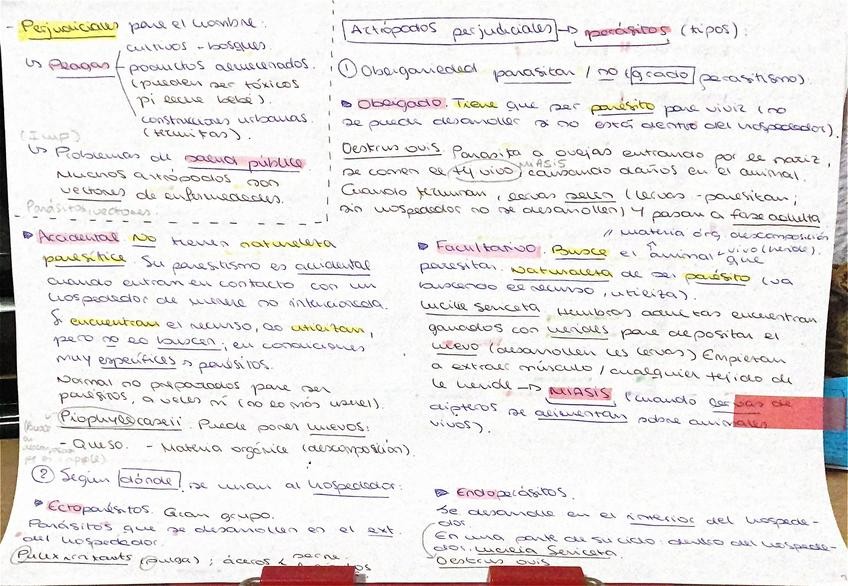 - Perjudiciales para el hombre:
cultivos - bosques
↳ Plagas productos almacenados.
(pueden ser tóxicos
p.j leche bebé).
construcciones urbanas.
(termitas).
(Imp)
↳ Problemas de salud pública
Muchos artrópodos son
vectores de enfermedades.
Parásitos/vectores.
Artrópodos perjudiciales → parásitos (tipos):
① Obligariedad parasitar / no (grado parasitismo).
Obligado. Tiene que ser parásito para vivir (no
se puede desarrollar si no está dentro del hospedador).
Oestrus ovis. Parasita a ovejas entrando por la nariz,
se comen el tj vivo MIASIS causando daños en el animal.
Cuando terminan, larvas salen (larvas - parasitan;
sin hospedador no se desarrollan) y pasan a fase adulta
Accidental. No tienen naturaleza
parasítica. Su parasitismo es accidental
cuando entran en contacto con un
hospedador de manera no intencionada.
Si encuentran el recurso, lo utilizan,
pero no lo buscan; en condiciones
muy específicas → parásitos.
Normal no preparados para ser
parásitos, a veces sí (no lo más usual).
Piophyla caseii. Puede poner huevos:
- Queso. - Materia orgánica (descomposición).
// materia órg. descomposición
Facultativo. Busca el animal vivo (herida). que
parasitar. Naturaleza de ser parásito (va
buscando el recurso, utiliza).
Lucilia Sericata. Hembras adultas encuentran
ganados con heridas para depositar el
huevo (desarrollan las larvas) Empiezan
a extraer músculo / cualquier tejido de
la herida → MIASIS (cuando larvas de
dípteros se alimentan sobre animales
vivos).
② Según dónde se unan al hospedador:
Ectoparásitos. Gran grupo.
Parásitos que se desarrollan en el ext.
del hospedador.
(pulga); ácaros
Endoparásitos.
Se desarrolla en el interior del hospede-
dor.
En una parte de su ciclo: dentro del hospede-
dor. Lucilia Sericata.
Oestrus ovis